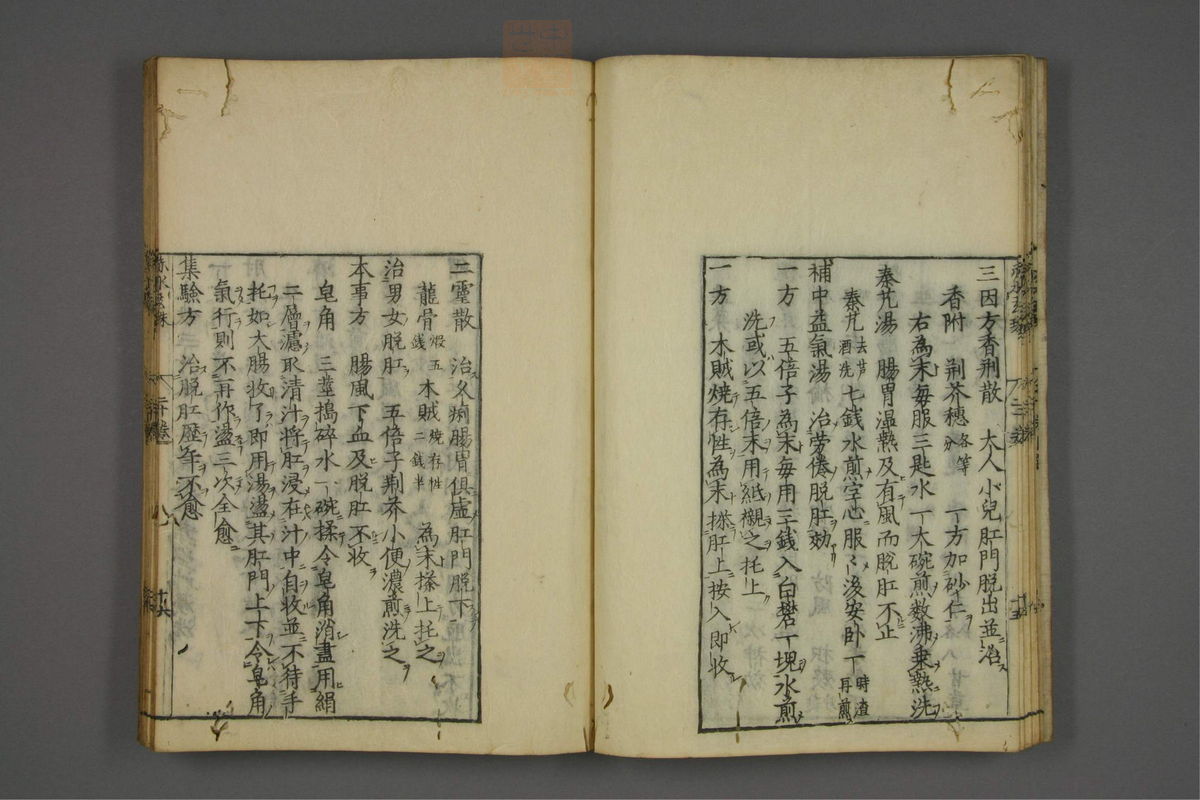 三因方香荆散　大人小兒肛門脱出並治
香附　荆芥穗各等分　一方加砂仁
右為末每服三匙水一大碗煎數沸乗熱洗
秦艽湯　腸胃温熱及有風而脱肛不止
秦艽去芦酒洗　七銭水煎空心服〻後安卧一時渣再煎
補中益氣湯　治勞倦脱肛効
一方　五倍子為末每用三銭入白礬一塊水煎
洗或以五倍末用紙襯之托上
一方　木賊燒存性為末搽肛上按入即收
二靈散　治久痢腸胃俱虛肛門脱下
龍骨煅五銭　木賊燒存性二銭半　為末搽上托之
治男女脱肛　五倍子荆芥小便濃煎洗之
本事方　腸風下血及脱肛不收
皂角　三莖搗碎水一碗揉令皂角消盡用絹
二層濾取清汁將肛浸在汁中自收並不待手
托如大腸收了即用湯盪其肛門上下令皂角
氣行則不再作盪三次全愈
集驗方　治脱肛歴年不愈